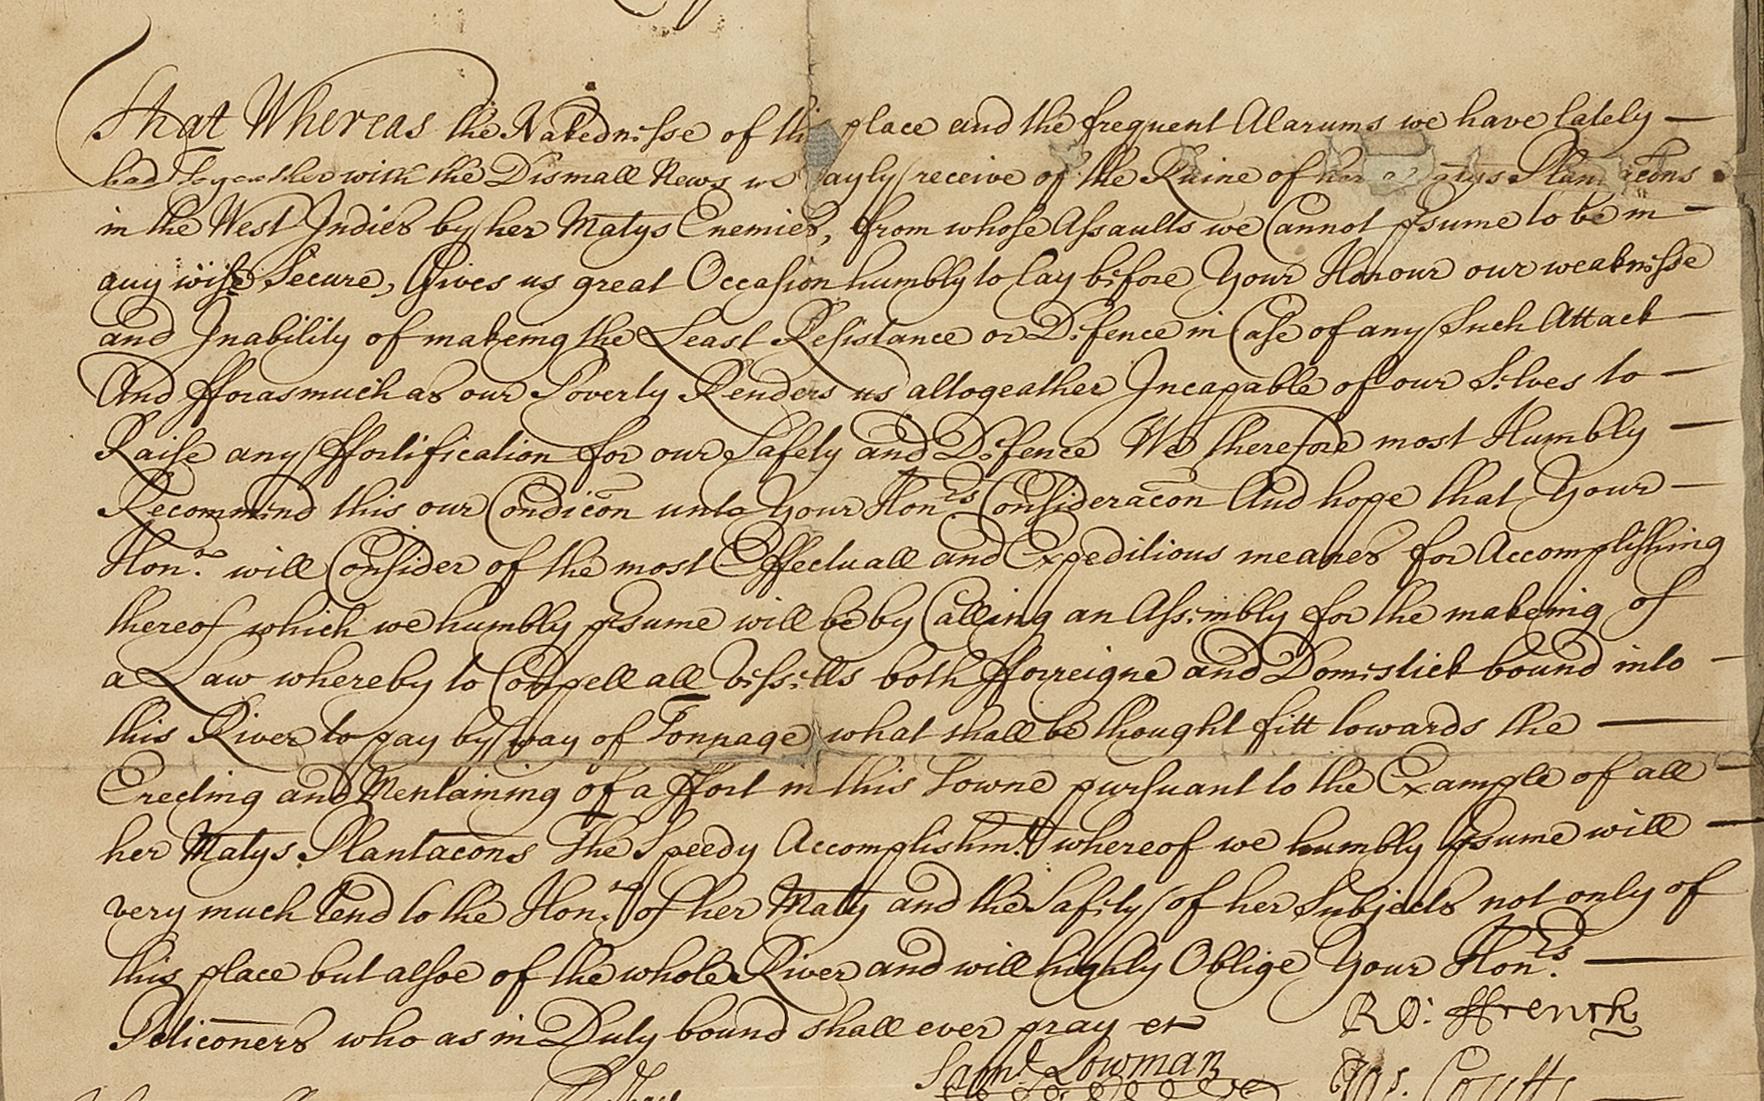 That Whereas the Nakednesse of thi place and the frequent Alarums we have lately
had Togeather with the Dismall News we ayly receive of the Ruine of her atys Plantacons
in the West Indies by her Matys Enemies, from whose Assaults we Cannot psume to be in
any wise Secure, Gives us great Occasion humbly to lay before Your Honour our weaknesse
and Inability of makeing the Least Resistance or Defence in Case of any Such Attack
And fforasmuch as our Poverty Renders us altogeather Incapable of our Selves to
Raise any ffortification for our Safety and Defence We therefore most Humbly
Recommend this our Condicon unto Your Honrs Consideracon And hope that Your
Honr. will Consider of the most Effectuall and Expeditious meanes for Accomplishing
thereof which we humbly psume will be by Calling an Assembly for the makeing of
a Law whereby to Compell all Vessells both fforreigne and Domestick bound into
this River to pay by way of Tonnage what shall be thought fitt towards the
Erecting and Mentaining of a ffort in this Towne pursuant to the Example of all
her Matys Plantacons The Speedy Accomplishmt. whereof we humbly psume will
very much tend to the Honr. of her Maty and the Safety of her Subjects not only of
this place but alsoe of the whole River and will highly Oblige Your Honrs.
Peticoners who as in Duty bound shall ever pray etc
Ro: ffrench
Saml. Lowman
Jas. Coutts